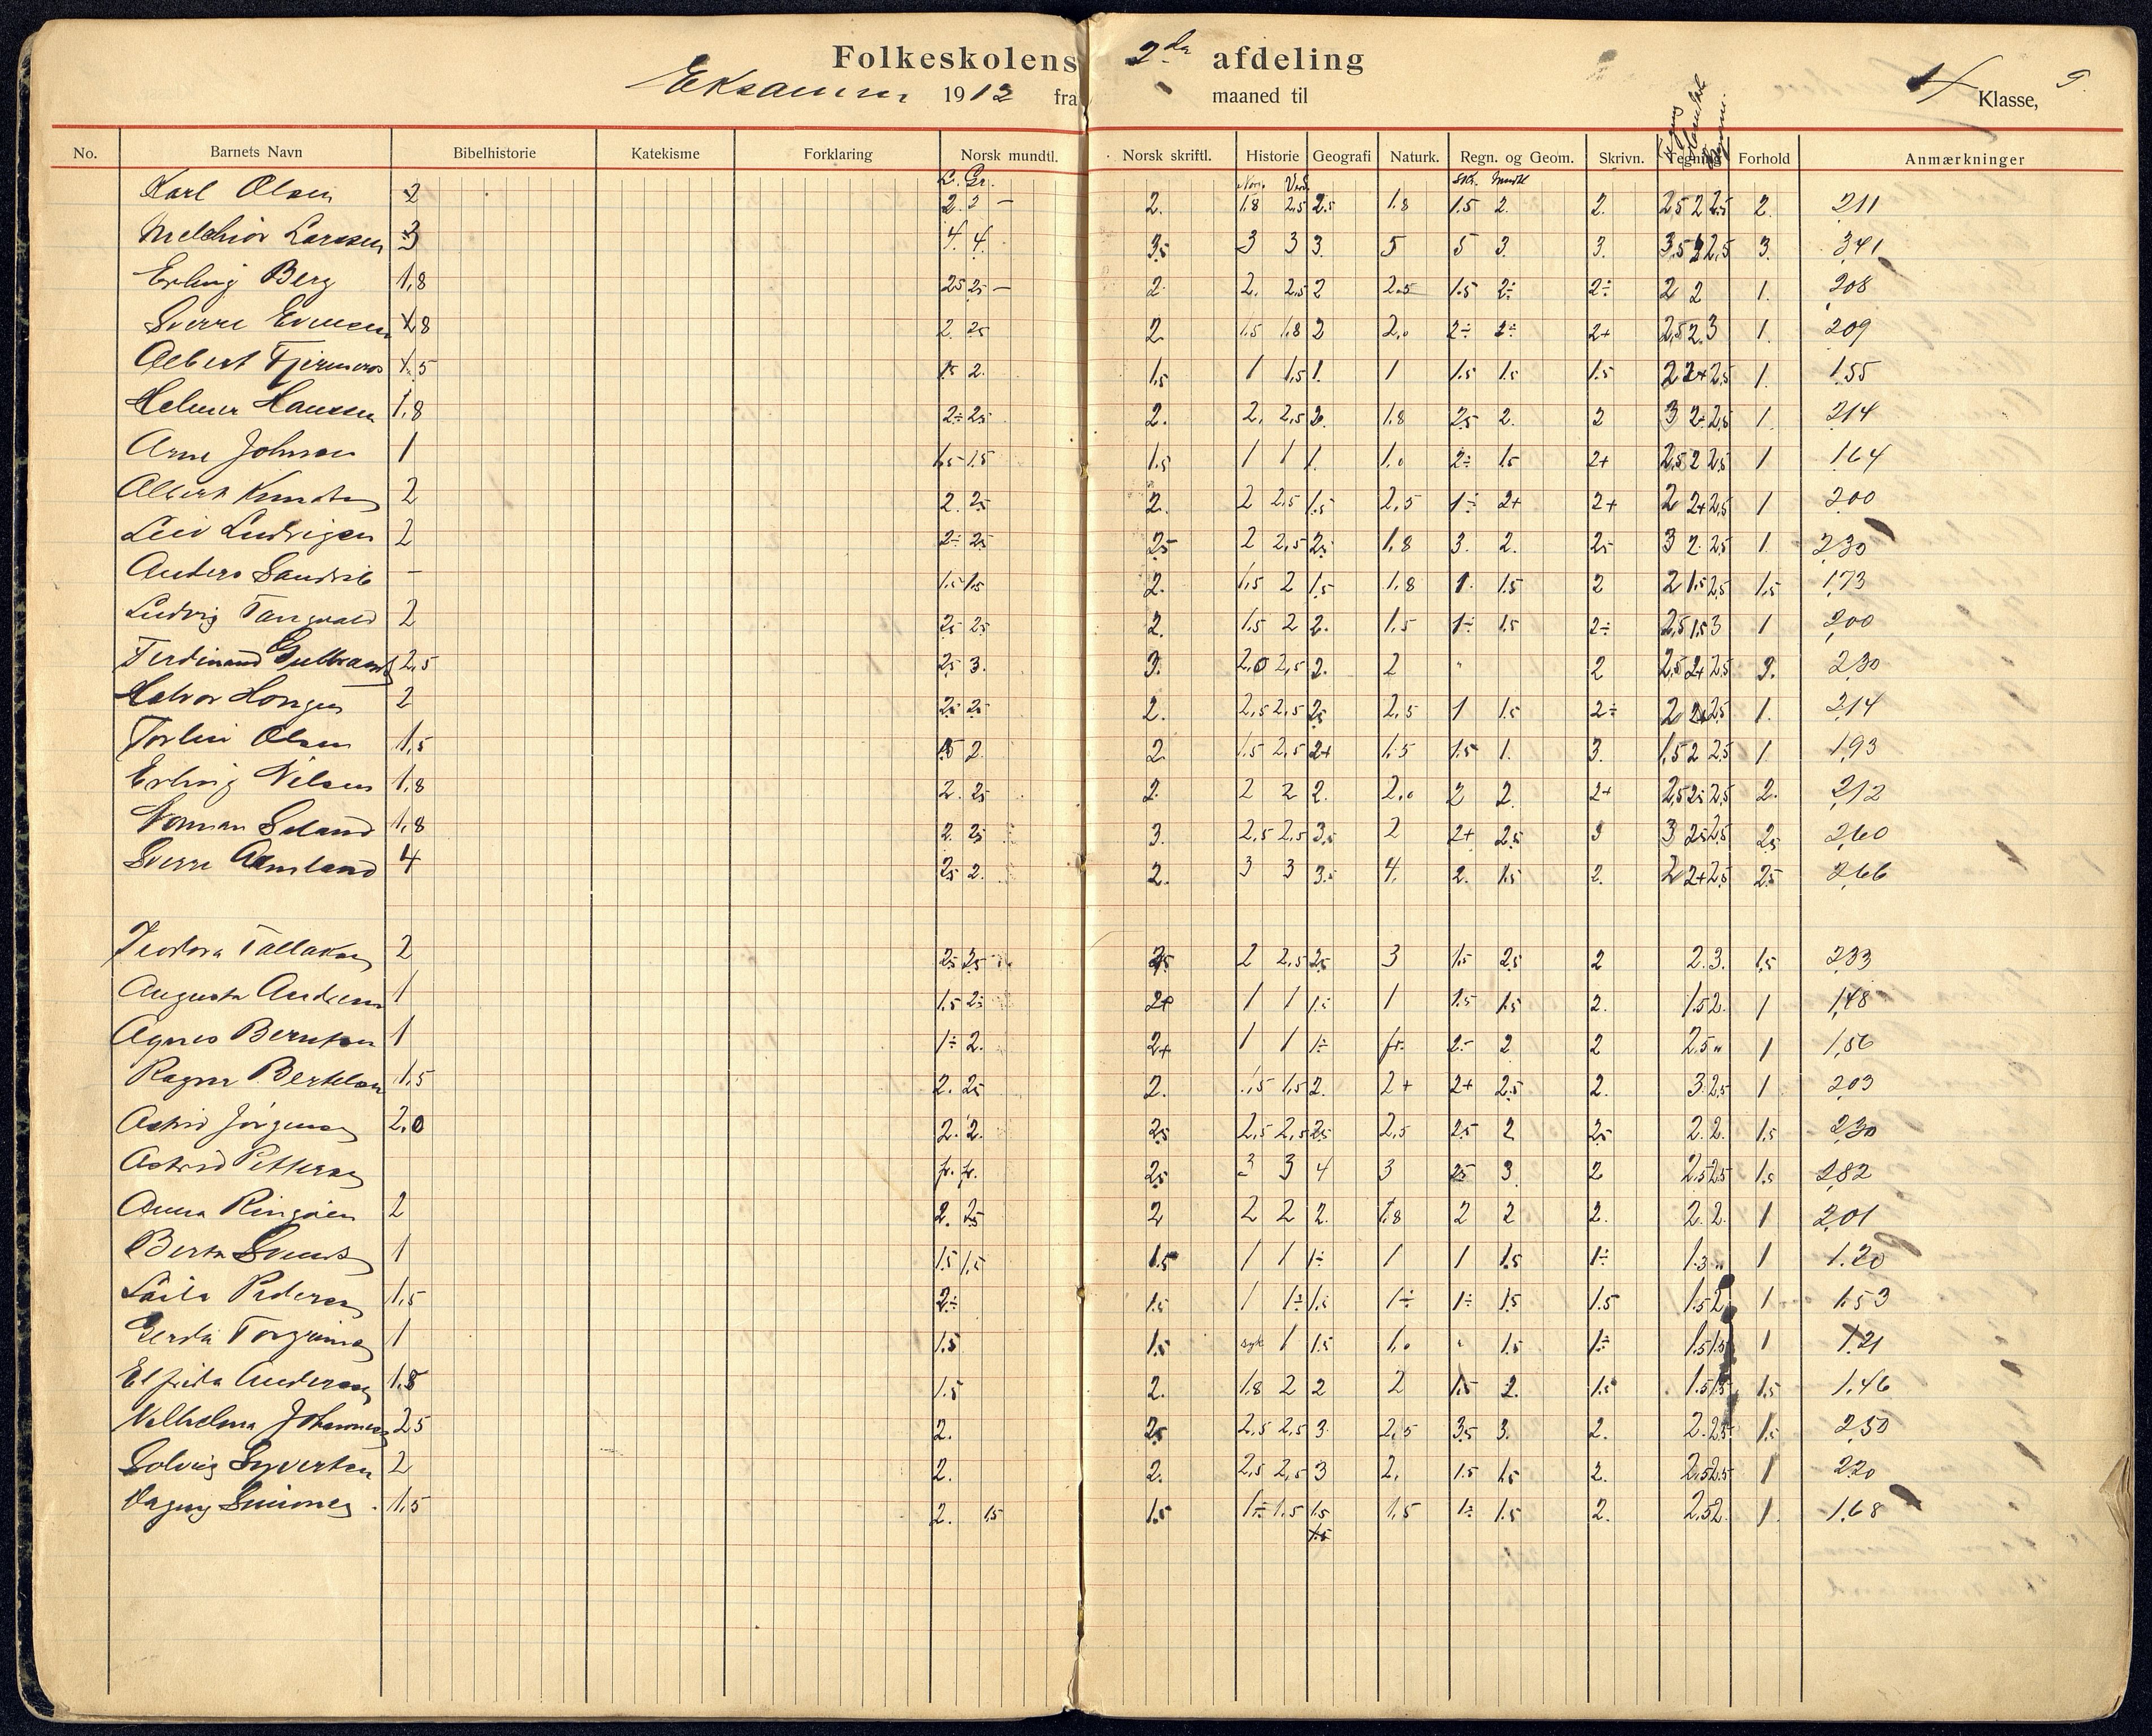 Folkeskolens 2da afdeling
Eksamen 1912 fra maaned til Klasse,
No. Barnets Navn Bibelhistorie Katekisme Forklaring Norsk mundtl. Norsk skriftl. Historie Geografi Naturk. Regn. og Geom. Skrivn. Tegning Forhold Anmærkninger
L. Gr. Nor. Verd. Skr. Mundtl
Karl Olsen 2 2. 2 — 2. 1.8 2.5 2.5 1.8 1.5 2. 2. 2.5 2 2.5 2. 2,11
Melchior Larssen 3 4. 4. 3.5 3 3 3. 5 5 3. 3. 3,5 2,5 3. 3,41
Erling Berg 1,8 2.5 2.5 — 2. 2. 2.5 2 2.5 1.5 2÷ 2÷ 2 2 1. 2,08
Sverre Evensen 1.8 2. 2.5 2. 1.5 1.8 2 2.0 2÷ 2÷ 2+ 2,5 2. 3 1. 2,09
Albert 1.5 1.5 2. 1.5 1 1.5 1. 1 1.5 1.5 1.5 2 2+ 2,5 1. 1,55
Helmer Hansen 1,8 2÷ 2.5 2. 2. 2,5 2. 1.8 2.5 2. 2 3 2÷ 2,5 1. 2,14
Arne Johnsen 1 1.5 1.5 1.5 1 1 1. 1.0 2÷ 1.5 2+ 2,5 2 2.5 1 1,64
Albert Knudsen 2 2. 2.5 2. 2 2,5 1.5 2,5 1÷ 2+ 2+ 2 2+ 2,5 1 2,00
Leiv Ludvigsen 2 2÷ 2.5 2.5 2 2,5 2.5 1,8 3. 2. 2.5 3 2. 2.5 1. 2,30
Anders Sandvik — 1.5 1.5 2. 1,5 2 1.5 1.8 1. 1.5 2 2 1.5 2.5 1.5 1,73
Ludvig Tangvald 2 2.5 2.5 2. 1.5 2 2. 1.5 1÷ 1.5 2÷ 2,5 1.5 3 1 2,00
Ferdinand Gulbrands 2,5 2.5 3. 3. 2,0 2,5 2. 2 " 2 2,5 2+ 2.5 3. 2,30
Halvor 2 2.5 2.5 2. 2,5 2,5 2.5 2,5 1 1.5 2÷ 2 2,5 1. 2,14
Torleiv Olsen 1,5 1.5 2. 2. 1.5 2,5 2+ 1.5 1.5 1. 3. 1,5 2 2.5 1. 1,93
Erling Nilsen 1,8 2. 2.5 2. 2 2 2. 2.0 2 2. 2+ 2,5 2.5 2,5 2. 2,12
Norman Søland 1,8 2. 2.5 3. 2,5 2,5 3.5 2 2+ 2.5 3 3 2.5 2,5 2.5 2,60
Sverre Aamland 4 2.5 2. 2. 3 3 3.5 4. 2. 1.5 2. 2 2+ 2,5 2.5 2,66
Teodora Tallaksen 2 2.5 2.5 2.5 2 2,5 2.5 3 1.5 2.5 2 2. 3. 1.5 2,33
Augusta Andersen 1 1.5 2.5 2+ 1 1 1.5 1 1.5 1.5 2. 1.5 2. 1 1,48
Agnes Berntsen 1 1÷ 2. 2+ 1 1 1÷ fr. 2÷ 2 2 2.5 " 1 1,56
Ragna Bertelsen 1.5 2. 2.5 2. 1.5 1.5 2. 2+ 2+ 2.5 2. 3. 2.5 1 2,03
Astrid Jørgensen 2,0 2. 2. 2.5 2,5 2,5 2.5 2,5 2.5 2 2.5 2. 2. 1.5 2,30
Astrid Pettersen fr. fr. 2.5 3 3 4 3 2.5 3. 2 2.5 2.5 1.5 2,82
Anna 2 2. 2.5 2 2 2 2. 1.8 2 2 2. 2. 2. 1 2,01
Berta 1 1.5 1.5 1.5 1 1 1÷ 1 1 1.5 1÷ 1.3 " 1 1.20
Laila Pedersen 1,5 2÷ 1.5 1 1÷ 1.5 1÷ 1÷ 1.5 1.5 1.5 2 1 1.53
Gerda Torgrims 1 1.5 1.5 syk 1 1.5 1.0 " 1.5 1÷ 1.5 1.5 1 1.21
Elfrida Andersen 1.8 1.5 2. 1.8 2 2 2 1.5 2. 1.5 1.5 1.5 1.5 1.46
Vilhelma Johannes 2.5 2. 2.5 2,5 2,5 3 2,5 3.5 3. 2. 2. 2.5 1.5 2,50
Solveig Syvertsen 2 2. 2. 2,5 2,5 3 2. 1.5 1.5 2. 2.5 2.5 1 2,20
Dagny Simones 1,5 2. 1.5 1.5 1÷ 1.5 1.5 1,5 1÷ 1.5 2. 2.5 2. 1. 1.68
1.5